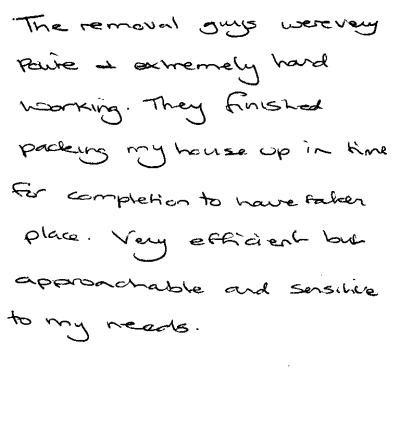 The removal guys were very
Polite & extremely hard
working. They finished
packing my house up in time
for completion to have taken
place. Very efficient but
approachable and sensitive
to my needs.